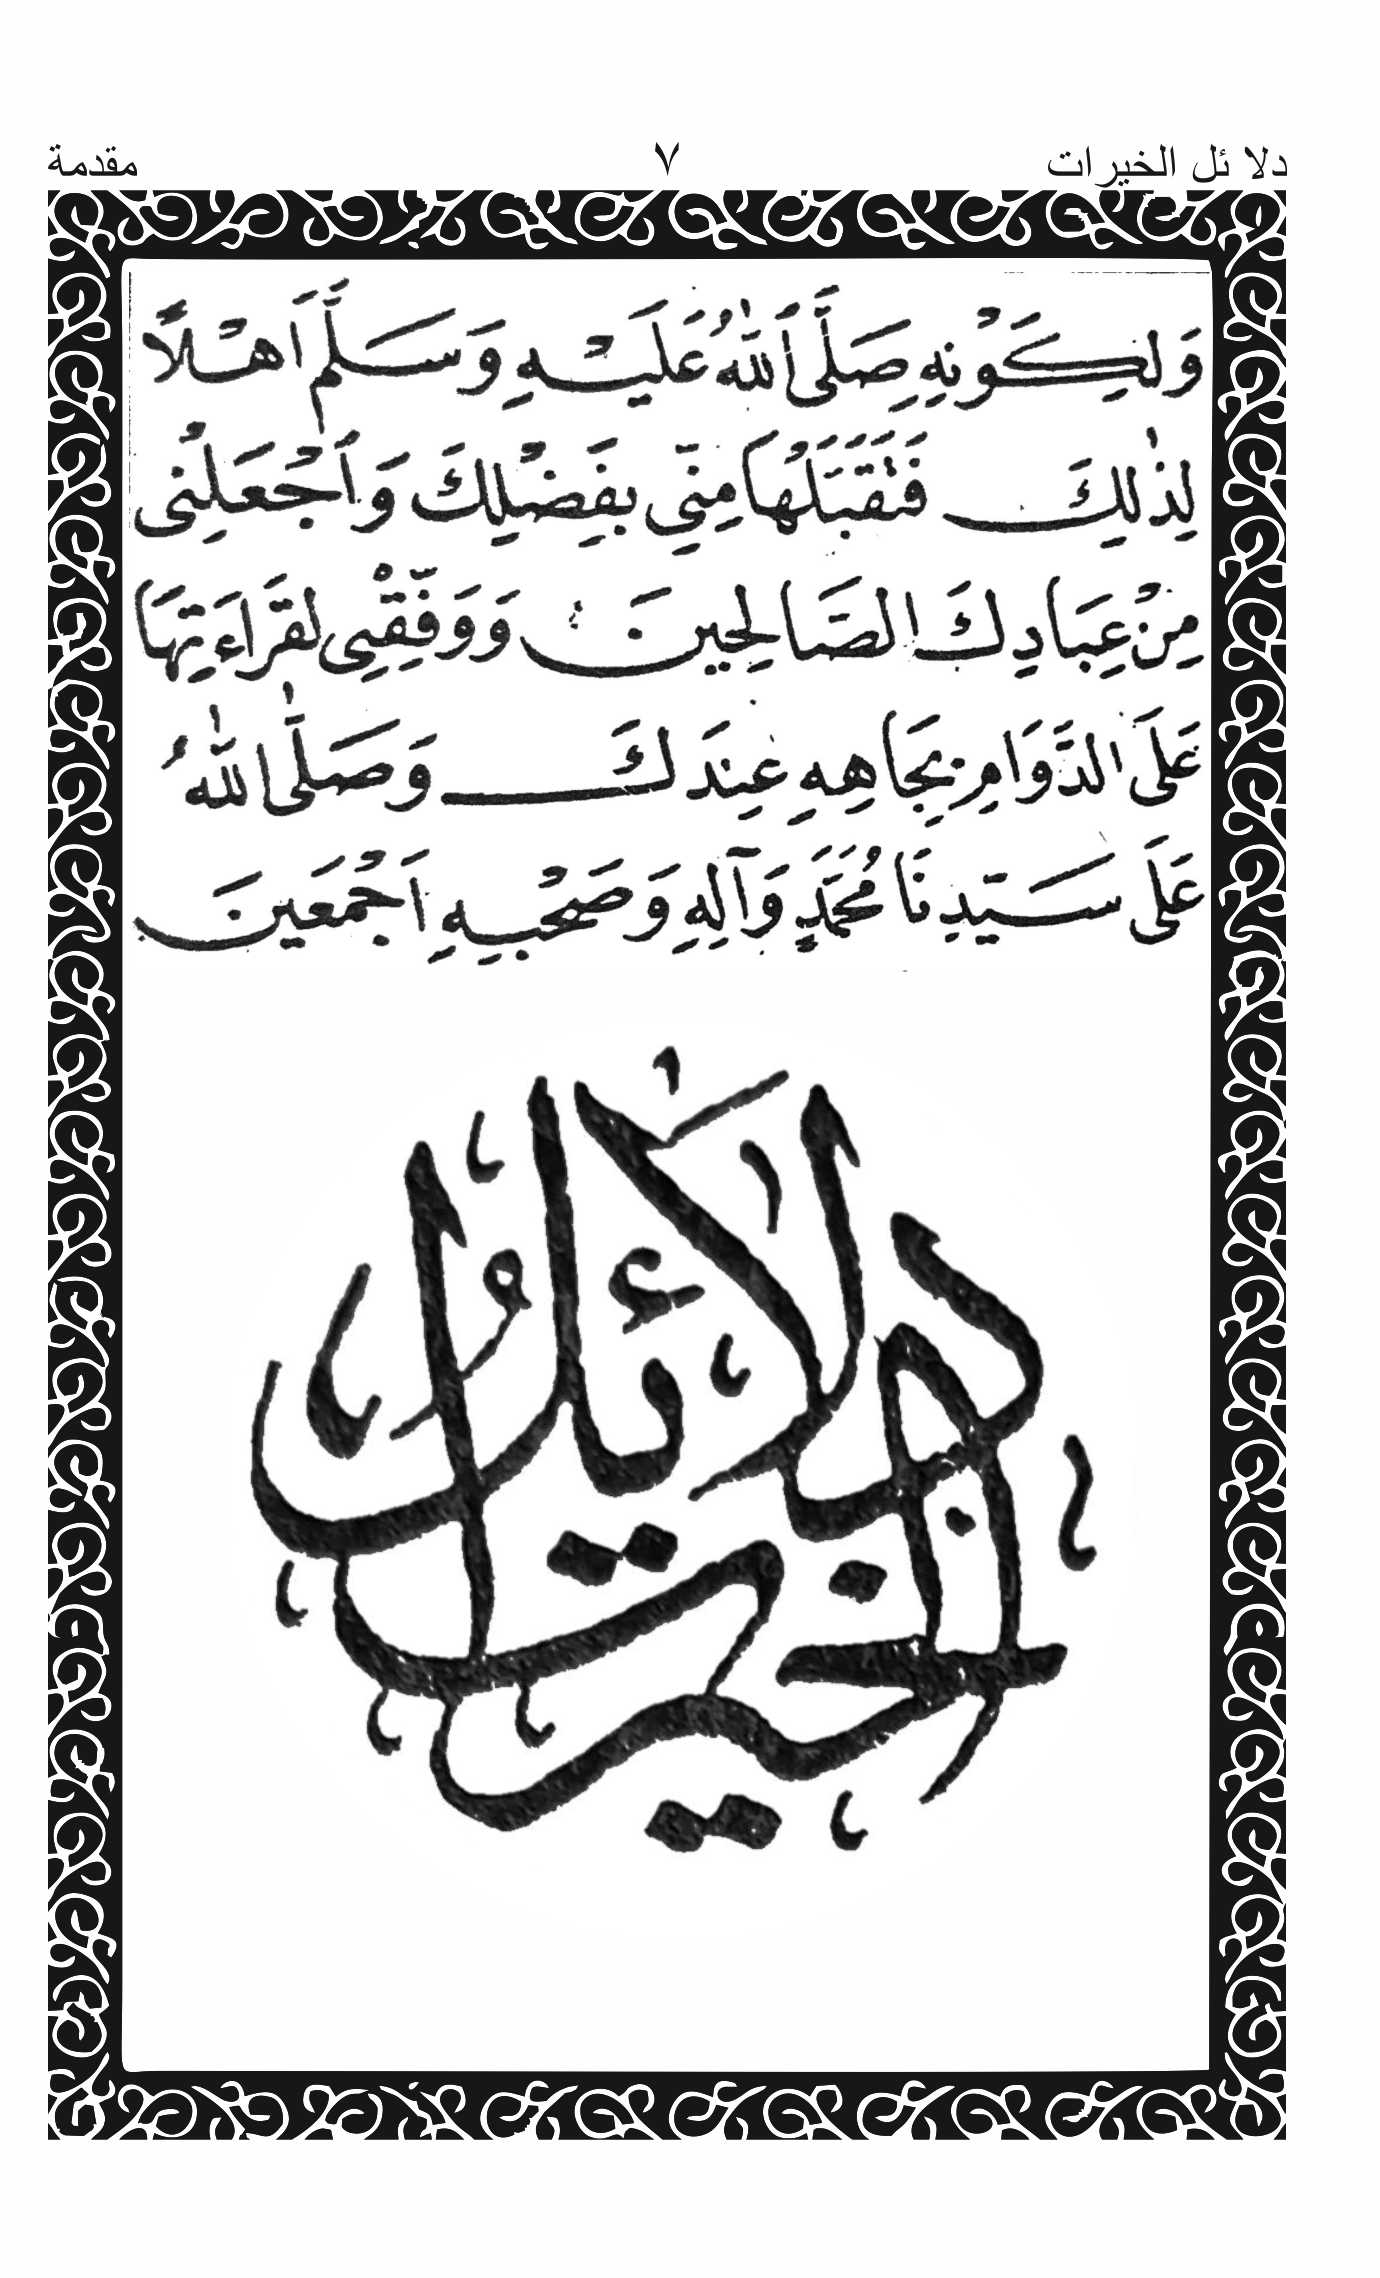 دلائل الخيرات
٧
مقدمة
وَلِكَوْنِهِ صَلَّى اللّٰهُ عَلَيْهِ وَسَلَّمَ اَهْلًا
لِذٰلِكَ فَتَقَبَّلْهَا مِنِّي بِفَضْلِكَ وَاَجْعَلْنِي
مِنْ عِبَادِكَ الصَّالِحِينَ وَوَفِّقْنِي لِقِرَاءَتِهَا
عَلَى الدَّوَامِ بِجَاهِهِ عِنْدَكَ وَصَلَّى اللّٰهُ
عَلَى سَيِّدِنَا مُحَمَّدٍ وَآلِهِ وَصَحْبِهِ اَجْمَعِينَ
دلائل
الخيرات